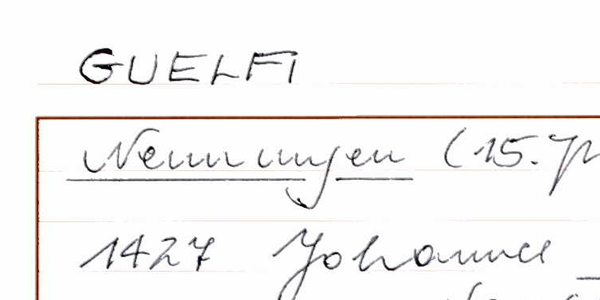 GUELFI
Nenningen (15. Jh
1427 Johannes